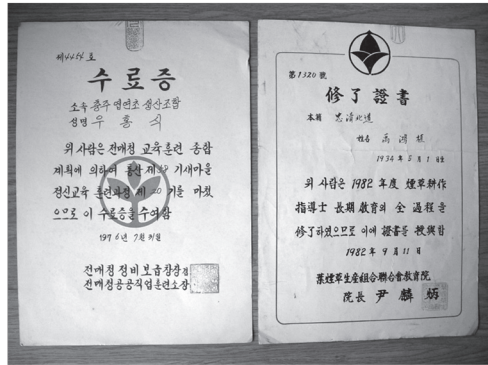 제4454호
수료증
소속 충주 엽연초 생산조합
성명 우홍식
위 사람은 전매청 교육훈련 종합
계획에 의하여 통산 제39기 새마을
정신교육 훈련과정 제20기를 마쳤
으므로 이 수료증을 수여함
1976년 7월
전매청 정비보급창창장
전매청공공직업훈련소장
第1320號
修了證書
本籍 忠淸北道
姓名 禹鴻植
1934年 5月 1日生
위 사람은 1982年度 煙草耕作
指導士 長期敎育의 全過程을
修了하였으므로 이에 證書를 授與함
1982年 9月 11日
葉煙草生産組合聯合會敎育院
院長 尹麟炳